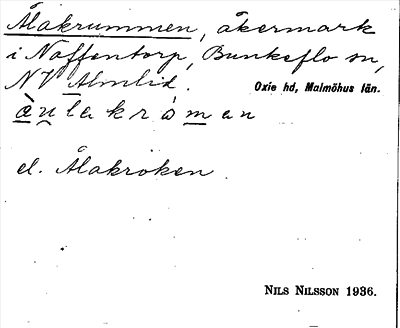 Ålakrummen, åkermark
i Naffentorp, Bunkeflo sn,
NV Almlid.
Oxie hd, Malmöhus län.
àu̯lakròman
el. Ålakroken.
NILS NILSSON 1936.